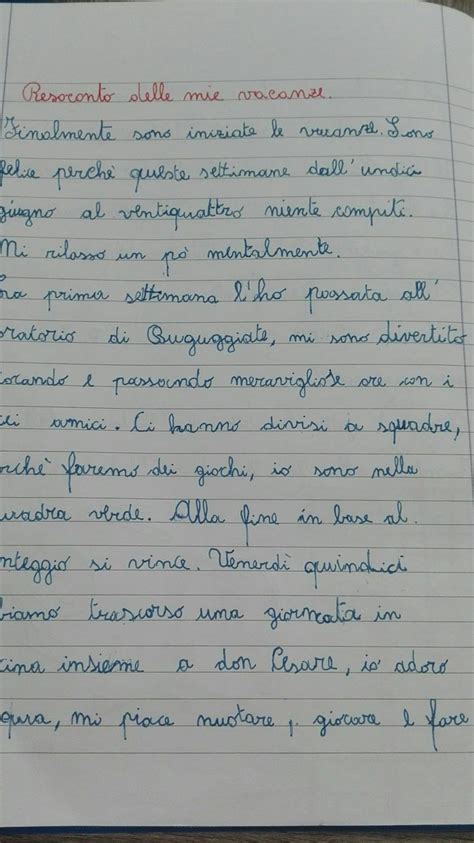 Resoconto delle mie vacanze.
Finalmente sono iniziate le vacanze. Sono
felice perchè queste settimane dall'undici
giugno al ventiquattro niente compiti.
Mi rilasso un pò mentalmente.
La prima settimana l'ho passata all'
oratorio di Buguggiate, mi sono divertito
iocando e passando meravigliose ore con i
iei amici. Ci hanno divisi a squadre,
rchè faremo dei giochi, io sono nella
uadra verde. Alla fine in base al
nteggio si vince. Venerdì quindici
biamo trascorso una giornata in
cina insieme a don Cesare, io adoro
qua, mi piace nuotare, giocare e fare